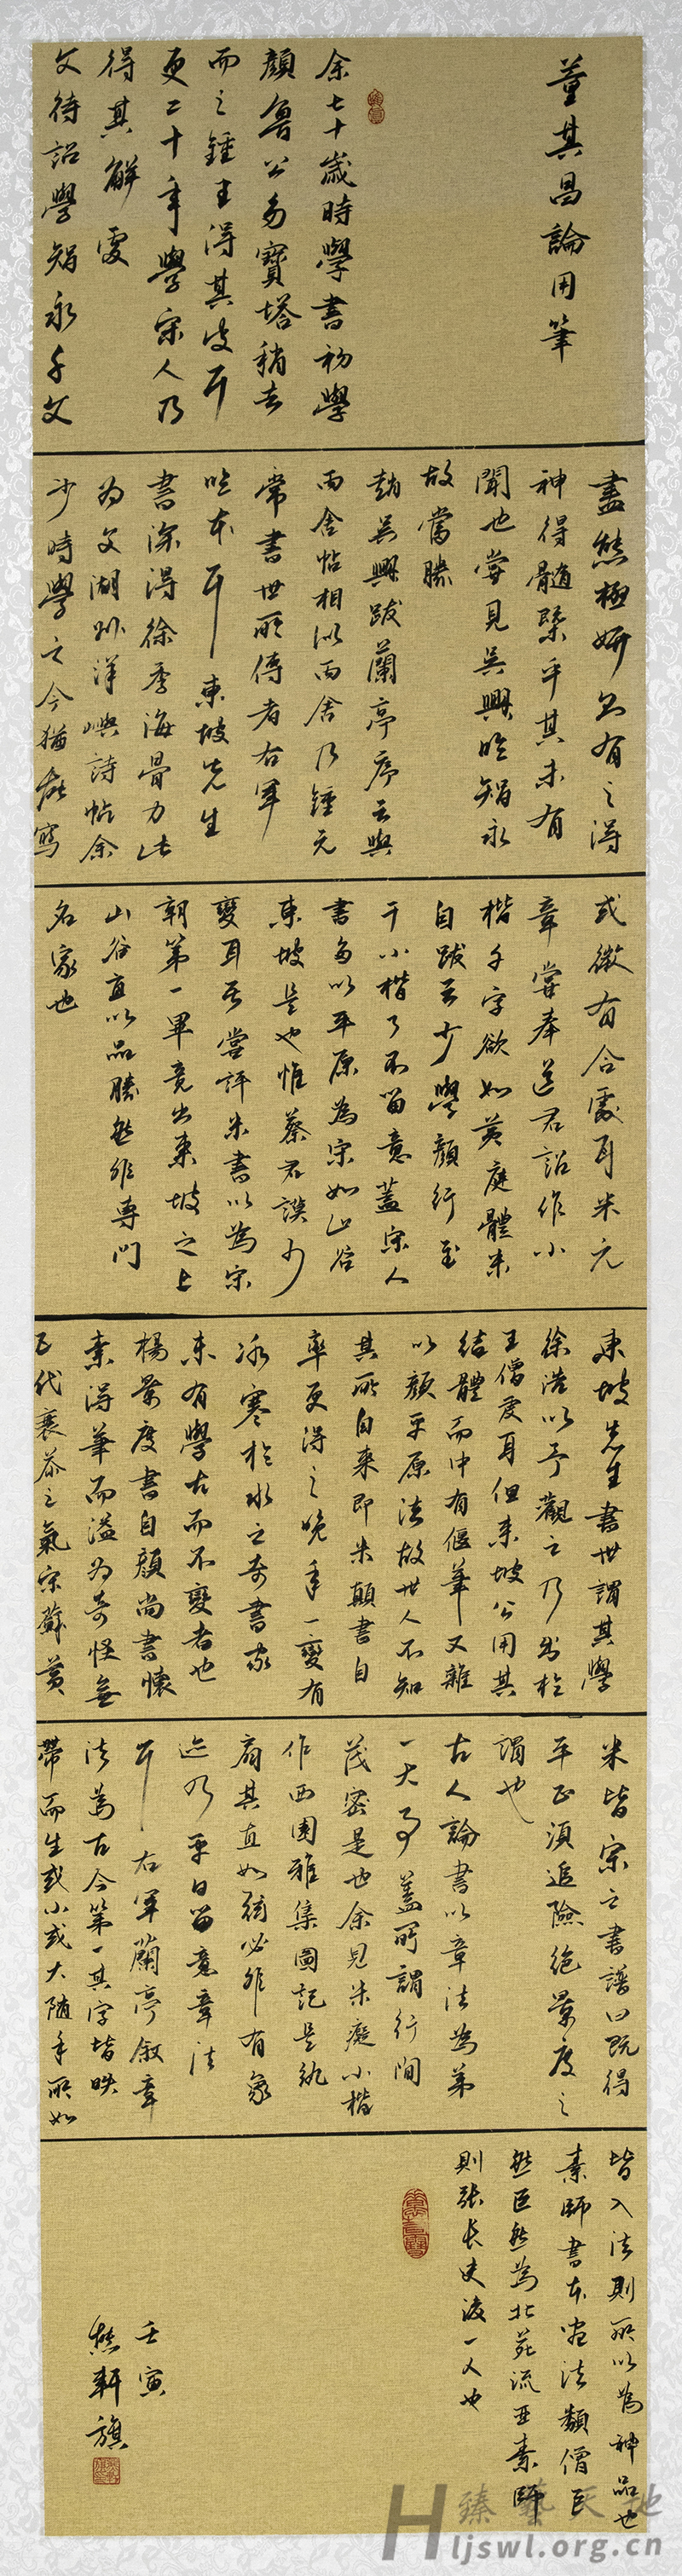 董其昌論用筆
余七十歲時學書初學
顏魯公多寶塔稍去
而之鍾王得其皮耳
更二十年學宋人乃
得其解處
文待詔學智永千文
盡態極妍則有之得
神得髓槩乎其未有
聞也嘗見吳興臨智永
故當勝
趙吳興跋蘭亭序云與
丙舍帖相似丙舍乃鍾元
常書世所傳者右軍
臨本耳東坡先生
書深得徐季海骨力此
為文湖州洋嶼詩帖余
少時學之今猶在寫
或微有合處耳米元
章嘗奉道君詔作小
楷千字欲如黃庭體米
自跋云少學顏行至
于小楷了不留意蓋宋人
書多以平原為宗如山谷
東坡是也惟蔡君謨少
變耳吾嘗評米書以為宋
朝第一畢竟出東坡之上
山谷直以品勝然非專門
名家也
東坡先生書世謂其學
徐浩以予觀之乃出於
王僧虔耳但東坡公用其
結體而中有偃筆又雜
以顏平原法故世人不知
其所自來即米顛書自
率更得之晚年一變有
冰寒於水之奇書家
未有學古而不變者也
楊景度書自顏尚書懷
素得筆而溢為奇怪無
五代衰苶之氣宋蘇黃
米皆宗之書譜曰既得
平正須追險絕景度之
謂也
古人論書以章法為第
一大事蓋所謂行間
茂密是也余見米癡小楷
作西園雅集圖記是紈
扇其直如弦必非有象
迹乃平日留意章法
耳右軍蘭亭敘章
法為古今第一其字皆映
帶而生或小或大隨手所如
皆入法則所以為神品也
素師書本畫法類僧巨
然巨然為北苑流亞素師
則張長史後一人也
壬寅
軒旗
臻藝天地
Hljswl.org.cn